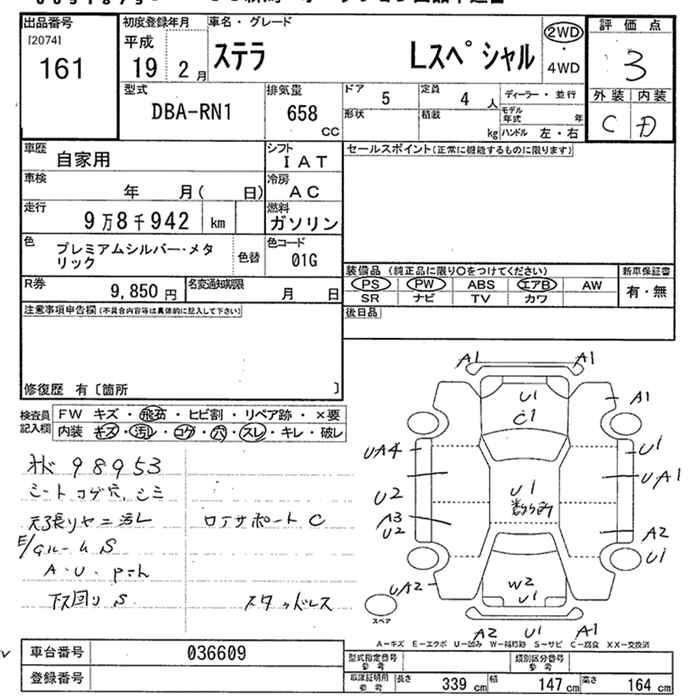 出品番号
[2074]
161
初度登録年月
平成
19 2月
車名・グレード
ステラ Lスペシャル
2WD
・
4WD
評価点
3
外装 内装
C D
型式
DBA-RN1
排気量
658
CC
ドア 5
定員 4 人
形状
積載 kg
ディーラー・並行
モデル年式 年
ハンドル 左・右
車歴 自家用
シフト IAT
車検 年 月( 日)
冷房 AC
走行 9万8千942 km
燃料 ガソリン
色 プレミアムシルバー・メタリック
色替
色コード 01G
R券 9,850円
名変通知期限 月 日
セールスポイント(正常に機能するものに限ります)
装備品(純正品に限り○をつけてください)
PS PW ABS エアB AW
SR ナビ TV カワ
新車保証書
有・無
後日品
注意事項申告欄(不具合内容等は具体的に記入して下さい)
修復歴 有〔箇所 〕
検査員記入欄
FW キズ・飛石・ヒビ割・リペア跡・×要
内装 キズ・汚レ・コゲ・穴・スレ・キレ・破レ
98953
シートコゲ穴、シミ
天張りヤニ汚レ
ロアサポートC
E/Gルーム S
A・U・
下回りS
スタッドレス
A1 A1
U1
C1
A1
UA4
U1
U2
UA1
U1
A3
U2
A2
U1
UA2
W2
U1
スペア
A2 U1 A1
A-キズ E-エクボ U-凹み W-補修跡 S-サビ C-腐食 XX-交換済
車台番号 036609
登録番号
型式指定番号 参考
類別区分番号 参考
長さ 339 cm
幅 147 cm
高さ 164 cm